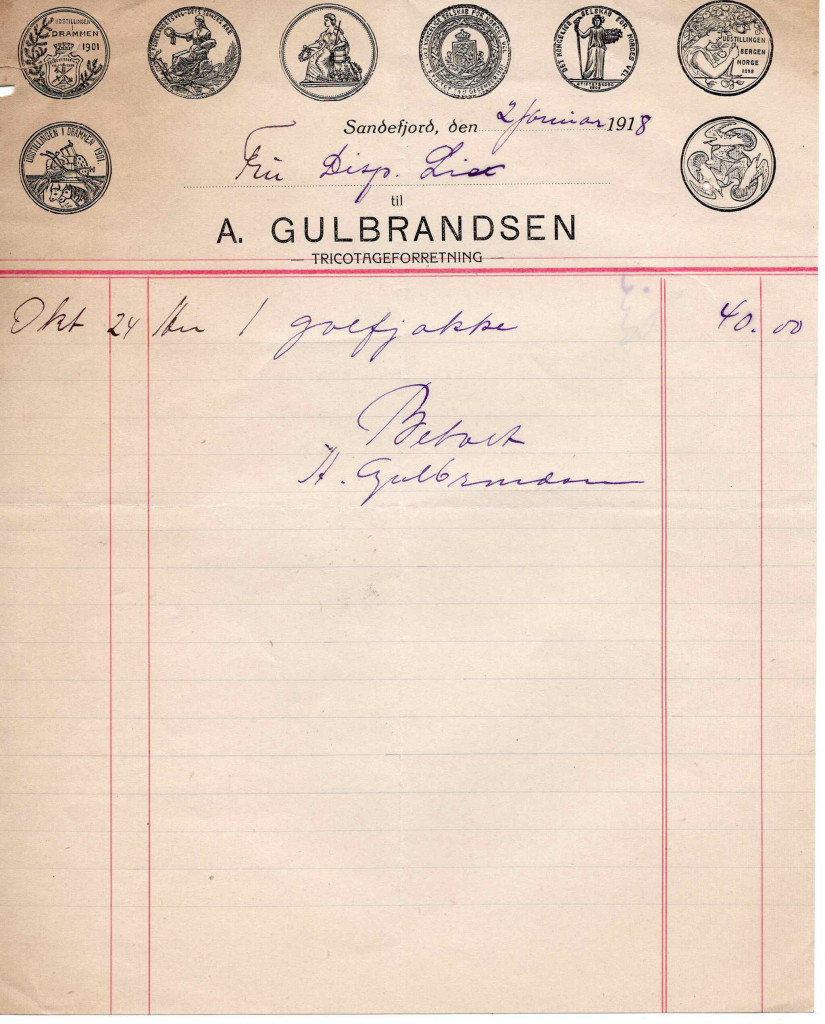 UDSTILLINGEN
DRAMMEN
1901
DET KONGELIGE SELSKAB FOR NORGES VEL
UDSTILLINGEN
BERGEN
NORGE
1898
UDSTILLINGEN I DRAMMEN 1901
Sandefjord, den 2 januar 1918
Fru Disp.
til
A. GULBRANDSEN
TRICOTAGEFORRETNING
Okt 24 1 golfjakke 40.00
Betalt
A. Gulbrandsen